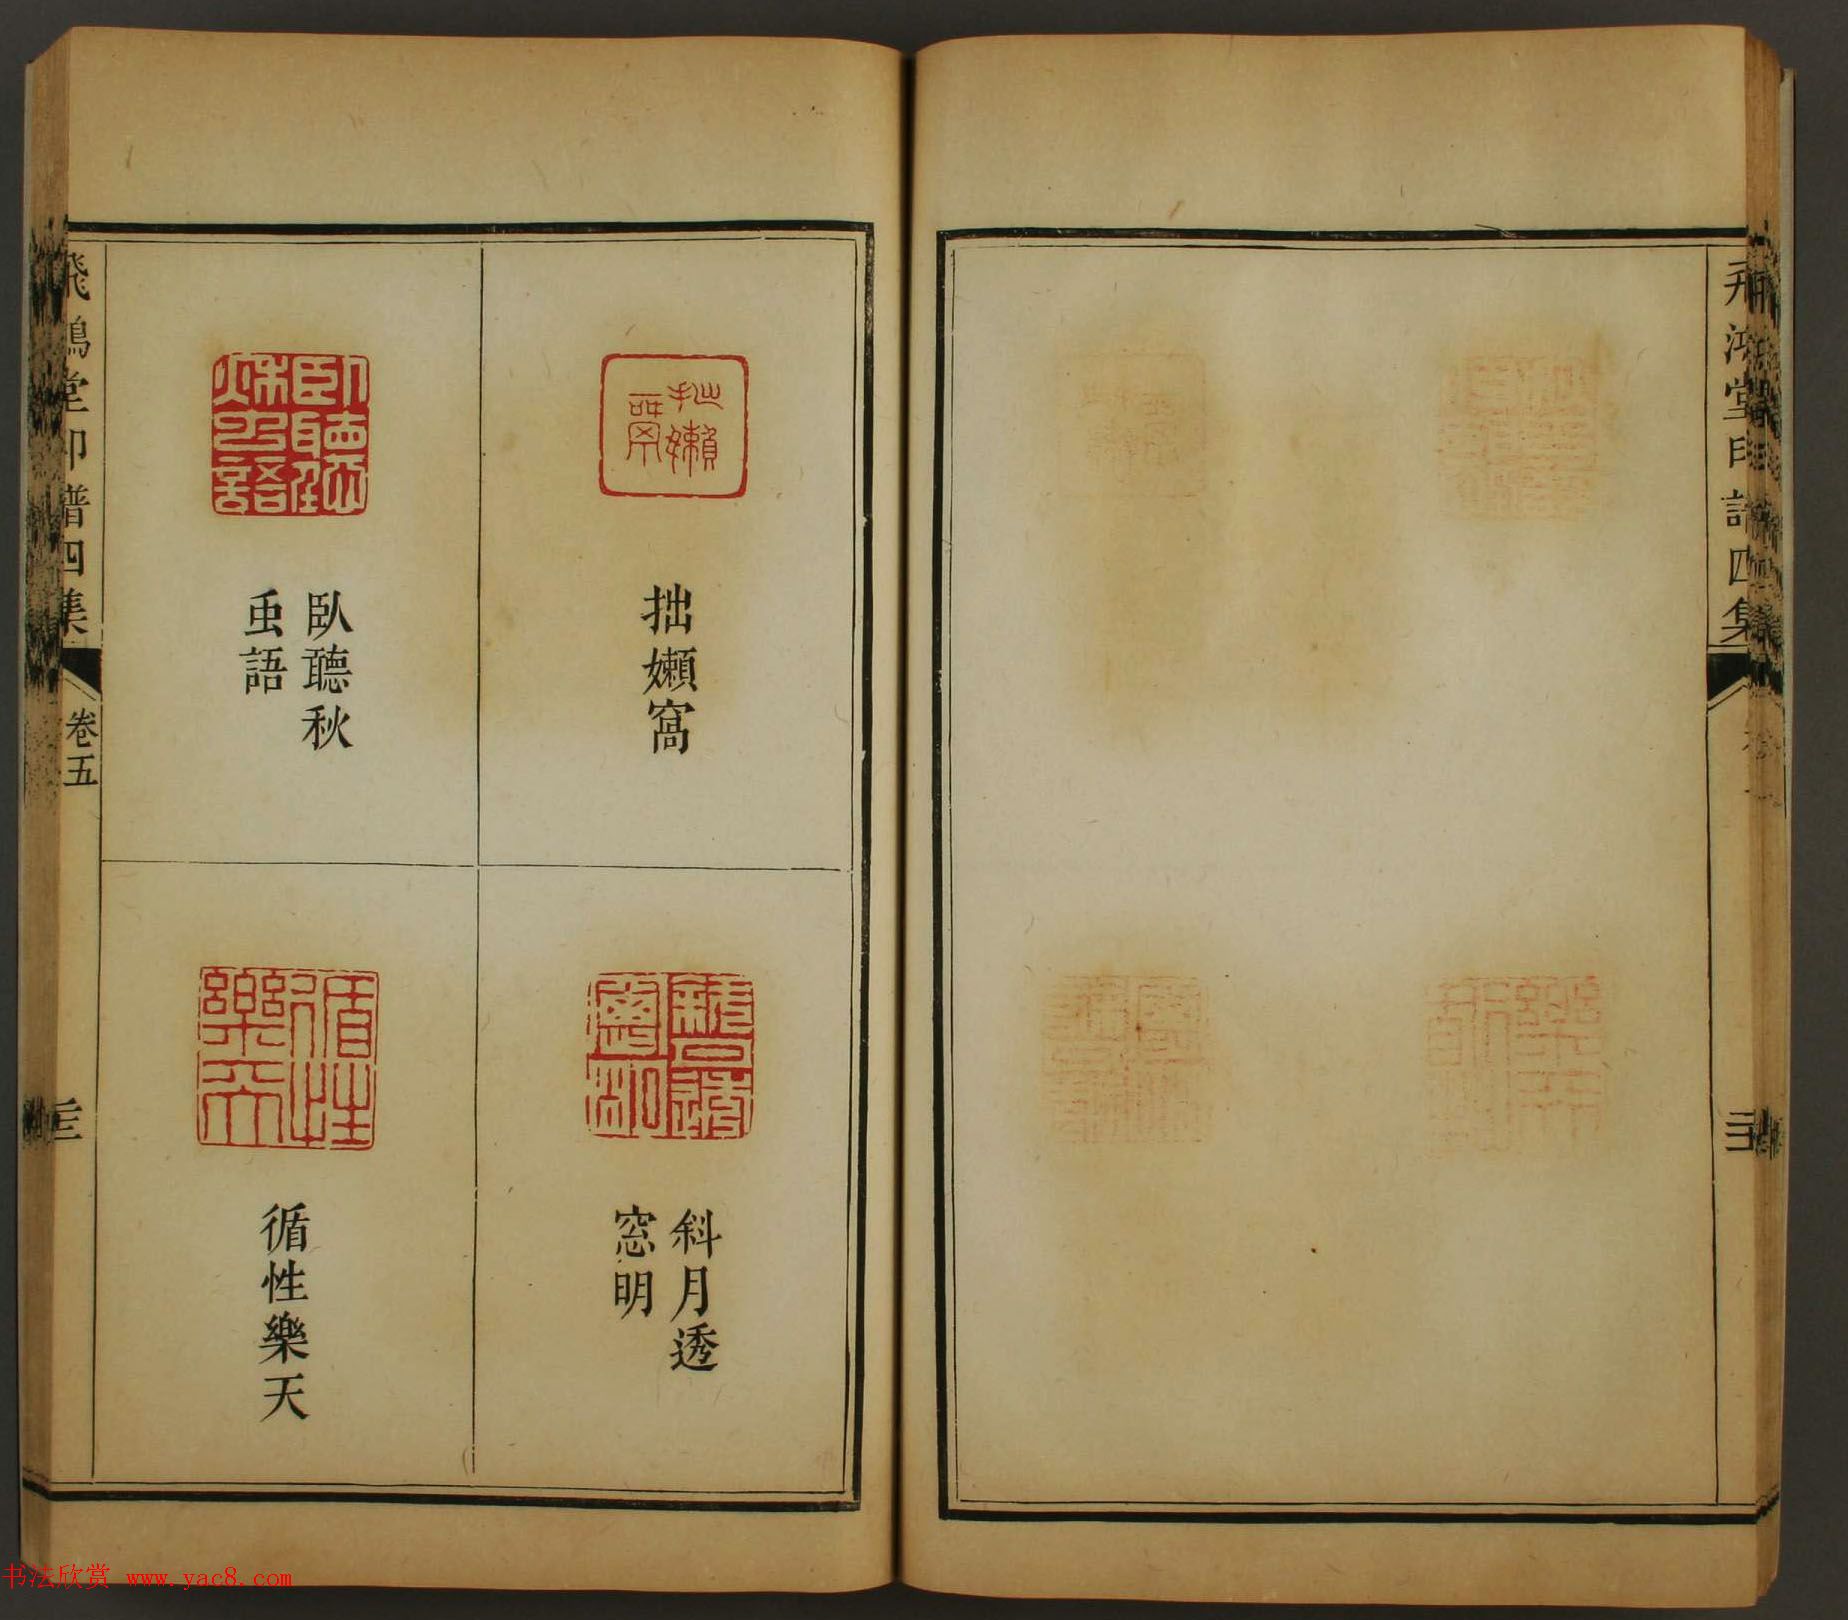 飛鴻堂印譜四集
拙嬾窩
臥聽秋
虫語
斜月透
窓明
循性樂天
飛鴻堂印譜四集
卷五
书法欣赏 www.yac8.com